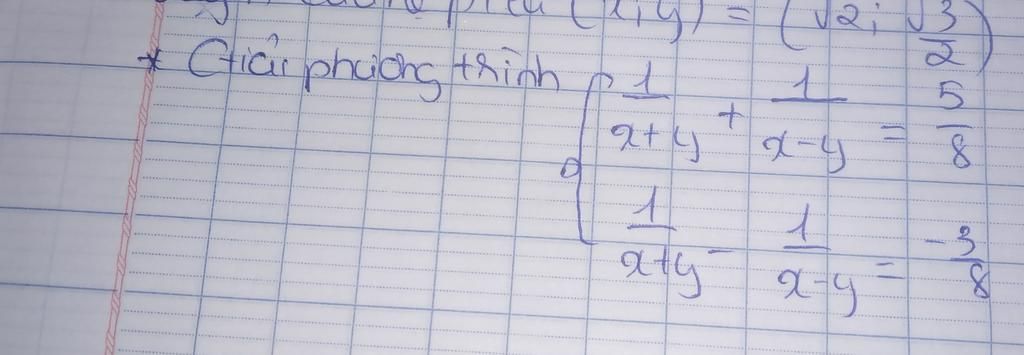 (x; y) = (√2; √3/2)
* Giải phương trình { 1/(x+y) + 1/(x-y) = 5/8
1/(x+y) - 1/(x-y) = -3/8